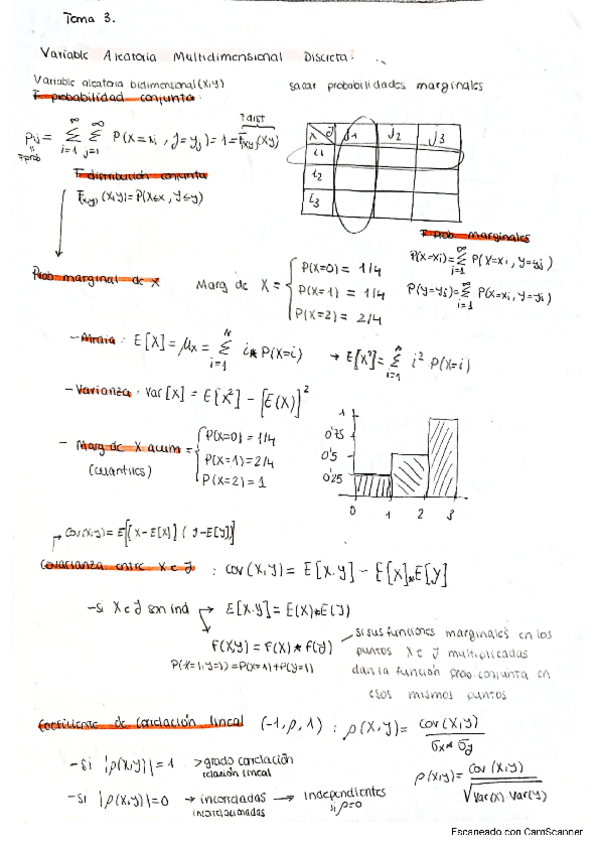 Tema 3.
Variable Aleatoria Multidimensional Discreta.
Variable aleatoria bidimensional (X,Y)
F probabilidad conjunta.
sacar probabilidades marginales
F dist
Pij = ∞ Σ i=1 ∞ Σ j=1 P(X=xi , Y=yj) = 1 = Fxy(xy)
F prob
X Y J1 J2 J3
i1
i2
i3
F distribución conjunta
F(x,y) (X,Y) = P(X≤x , Y≤y)
F prob marginales
P(X=xi) = ∞ Σ j=1 P(X=xi , Y=yj)
P(Y=yj) = ∞ Σ i=1 P(X=xi , Y=yj)
Prob marginal de X
Marg de X =
P(X=0) = 1/4
P(X=1) = 1/4
P(X=2) = 2/4
- Media : E[X] = μx = N Σ i=1 i * P(X=i) → E[X²] = N Σ i=1 i² P(X=i)
- Varianza . Var[X] = E[X²] - [E(X)]²
- Marg de X acum =
(cuantiles)
P(X=0) = 1/4
P(X=1) = 2/4
P(X=2) = 1
1
0'75
0'5
0'25
0 1 2 3
→ Cov(X,Y) = E[(X-E[X]) (Y-E[Y])]
Covarianza entre X e Y : Cov(X,Y) = E[X.Y] - E[X]*E[Y]
-si X e Y son ind → E[X.Y] = E(X)*E(Y)
F(X,Y) = F(X) * F(Y)
P(X=1,Y=1) = P(X=1)+P(Y=1)
si sus funciones marginales en los
puntos X e Y multiplicadas
dan la función prob conjunta en
esos mismos puntos
Coeficiente de correlación lineal (-1,ρ,1) : ρ(X,Y) = Cov(X,Y) / σx * σy
- si |ρ(X,Y)| = 1 > grado correlación
relación lineal
ρ(X,Y) = Cov(X,Y) / √Var(X) Var(Y)
- si |ρ(X,Y)| = 0 → incorreladas → Independientes
incorrelacionadas
si ρ=0
Escaneado con CamScanner